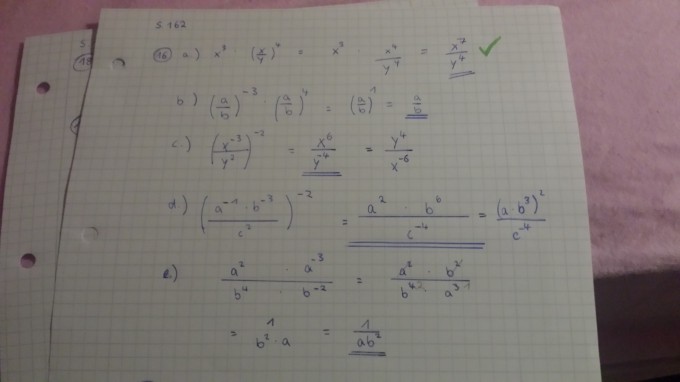 S. 162
16 a.) x³ (x/y)⁴ = x³ · x⁴/y⁴ = x⁷/y⁴ ✓
b) (a/b)⁻³ · (a/b)⁴ = (a/b)¹ = a/b
c.) (x⁻³/y²)⁻² = x⁶/y⁻⁴ = y⁴/x⁻⁶
d.) (a⁻¹ · b⁻³/c²)⁻² = a² · b⁶/c⁻⁴ = (a · b³)²/c⁻⁴
e.) a² · a⁻³/b⁴ · b⁻² = a² · b²/b⁴ · a³
= 1/b² · a = 1/ab²